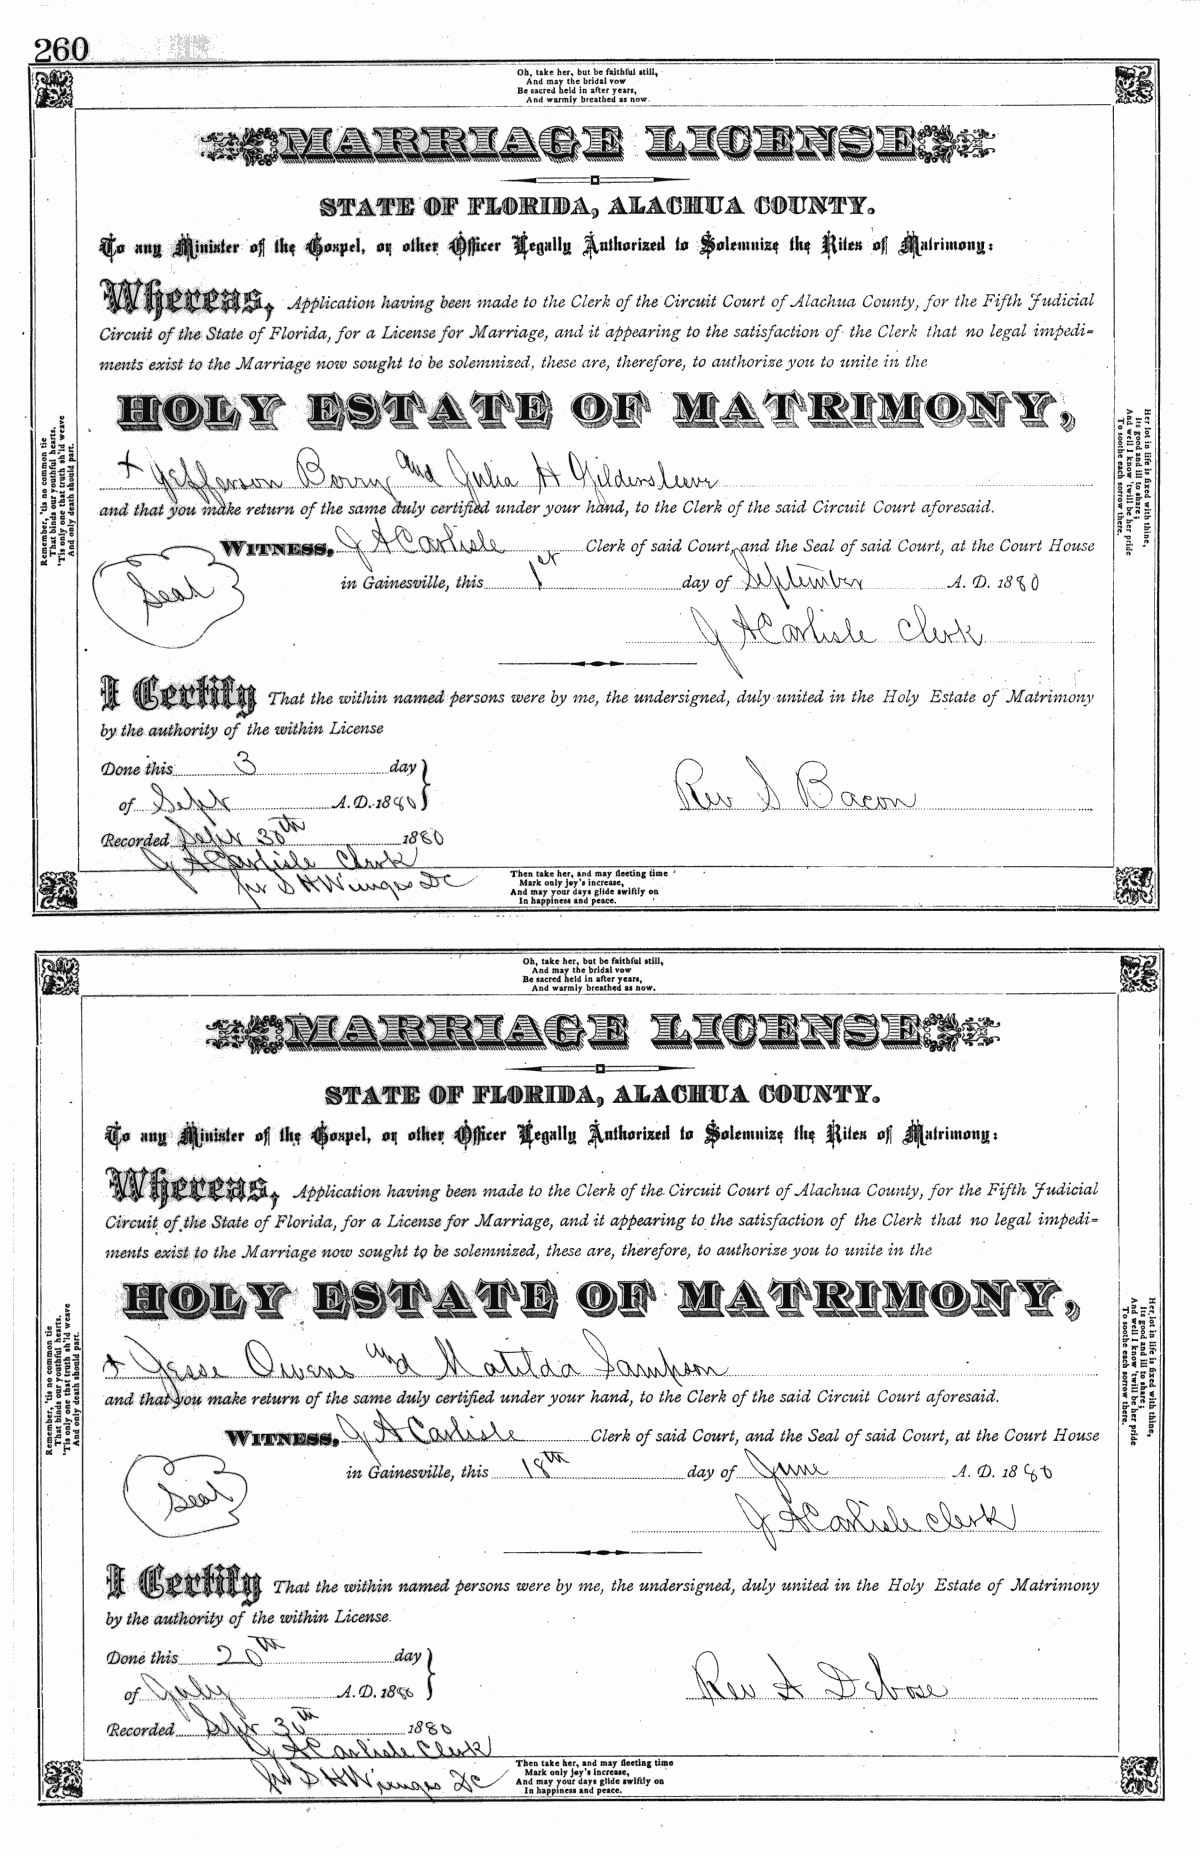 260
Oh, take her, but be faithful still,
And may the bridal vow
Be sacred held in after years,
And warmly breathed as now.
MARRIAGE LICENSE
STATE OF FLORIDA, ALACHUA COUNTY.
To any Minister of the Gospel, or other Officer Legally Authorized to Solemnize the Rites of Matrimony:
Whereas, Application having been made to the Clerk of the Circuit Court of Alachua County, for the Fifth Judicial
Circuit of the State of Florida, for a License for Marriage, and it appearing to the satisfaction of the Clerk that no legal impedi=
ments exist to the Marriage now sought to be solemnized, these are, therefore, to authorize you to unite in the
HOLY ESTATE OF MATRIMONY,
+ Jefferson Berry and Julia H Gildersleeve
and that you make return of the same duly certified under your hand, to the Clerk of the said Circuit Court aforesaid.
WITNESS, J A Carlisle Clerk of said Court, and the Seal of said Court, at the Court House
Seal
in Gainesville, this 1st day of September A. D. 1880
J A Carlisle Clerk
I Certify That the within named persons were by me, the undersigned, duly united in the Holy Estate of Matrimony
by the authority of the within License
Done this 3 day
of Sept A.D. 1880
Rev S Bacon
Recorded Sept 30th 1880
J A Carlisle Clerk
per S H Wienges DC
Then take her, and may fleeting time
Mark only joy's increase,
And may your days glide swiftly on
In happiness and peace.
Remember, 'tis no common tie
That binds our youthful hearts,
'Tis only one that truth sh'ld weave
And only death should part.
Her lot in life is fixed with thine,
Its good and ill to share;
And well I know 'twill be her pride
To soothe each sorrow there.
Oh, take her, but be faithful still,
And may the bridal vow
Be sacred held in after years,
And warmly breathed as now.
MARRIAGE LICENSE
STATE OF FLORIDA, ALACHUA COUNTY.
To any Minister of the Gospel, or other Officer Legally Authorized to Solemnize the Rites of Matrimony:
Whereas, Application having been made to the Clerk of the Circuit Court of Alachua County, for the Fifth Judicial
Circuit of the State of Florida, for a License for Marriage, and it appearing to the satisfaction of the Clerk that no legal impedi=
ments exist to the Marriage now sought to be solemnized, these are, therefore, to authorize you to unite in the
HOLY ESTATE OF MATRIMONY,
+ Jesse Owens and Matilda Sampson
and that you make return of the same duly certified under your hand, to the Clerk of the said Circuit Court aforesaid.
WITNESS, J A Carlisle Clerk of said Court, and the Seal of said Court, at the Court House
Seal
in Gainesville, this 18th day of June A. D. 1880
J A Carlisle clerk
I Certify That the within named persons were by me, the undersigned, duly united in the Holy Estate of Matrimony
by the authority of the within License.
Done this 20th day
of July A.D. 1880
Rev A Debose
Recorded Sept 30th 1880
J A Carlisle Clerk
per S H Wienges DC
Then take her, and may fleeting time
Mark only joy's increase,
And may your days glide swiftly on
In happiness and peace.
Remember, 'tis no common tie
That binds our youthful hearts,
'Tis only one that truth sh'ld weave
And only death should part.
Her lot in life is fixed with thine,
Its good and ill to share;
And well I know 'twill be her pride
To soothe each sorrow there.